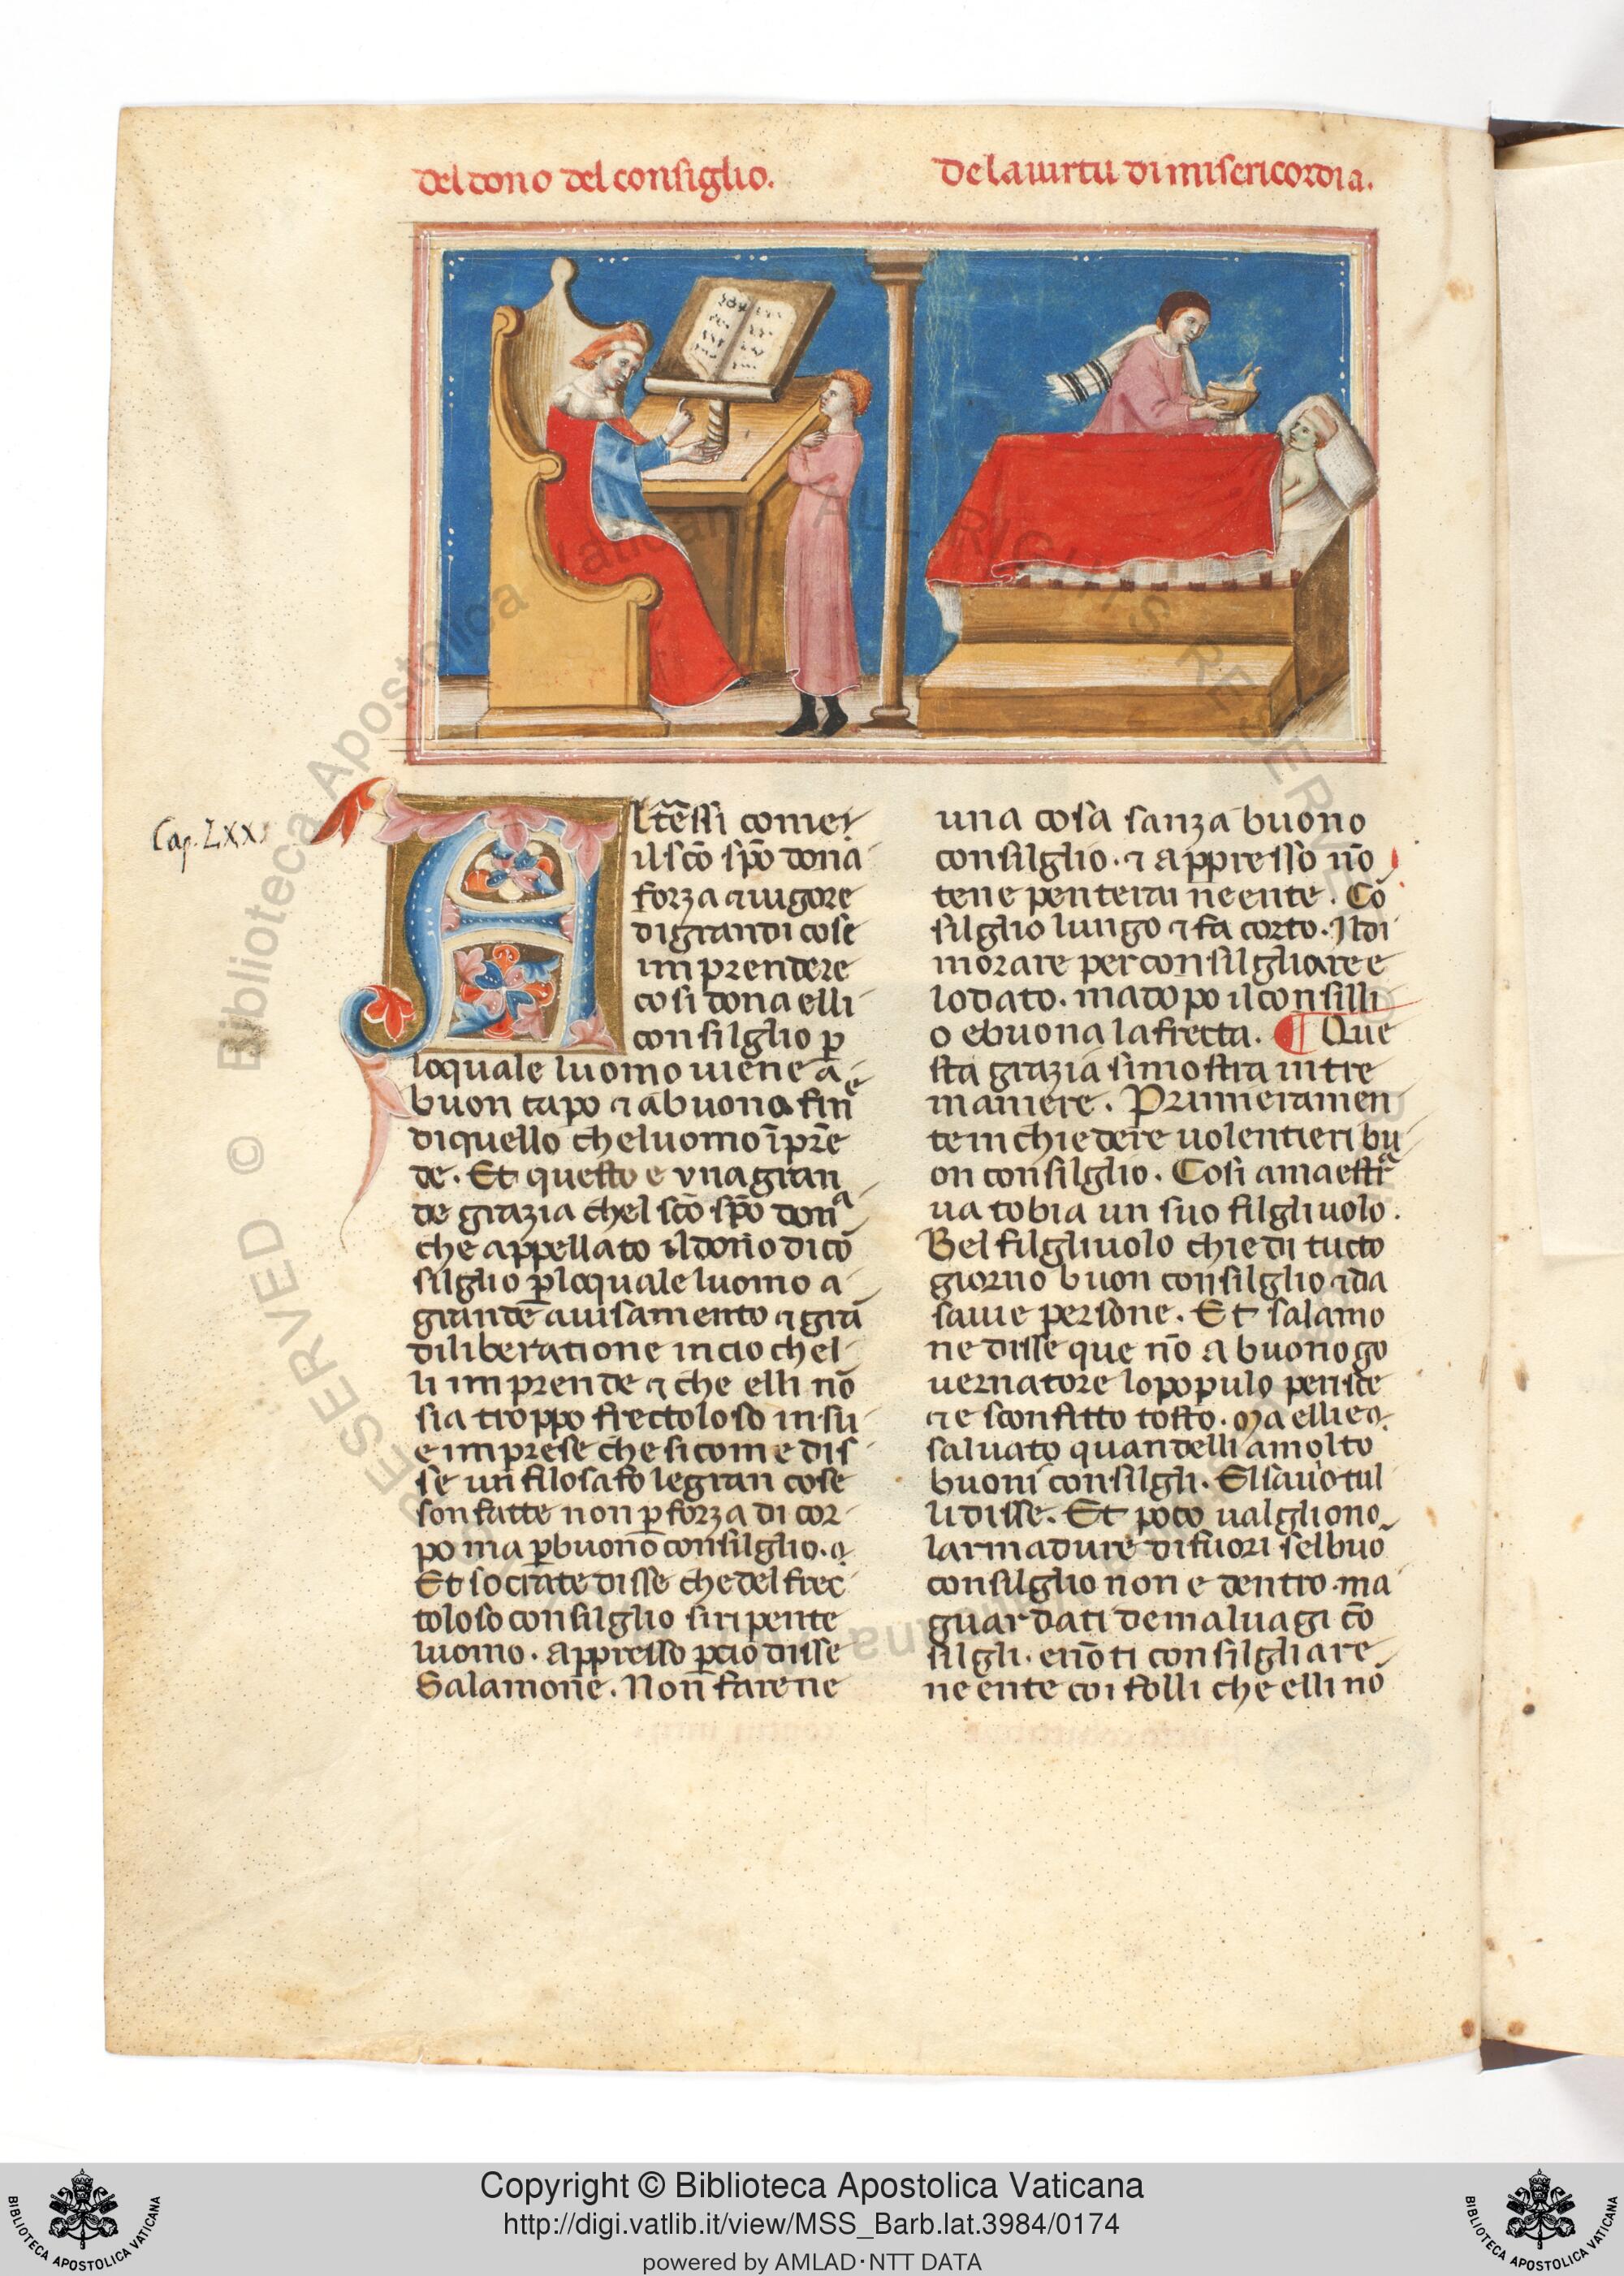 del dono del consiglio.
De la uirtu di misericordia.
Cap. LXX
Altr̃essi come
il sc̃o sp̃o dona
forza ⁊ uigore
di grandi cose
imprendere
cosi dona elli
consilglio ꝑ
loquale luomo uiene a
buon capo ⁊ a buona fine
di quello che luomo ĩpr̃e
de. Et questo e vna gran
de grazia chel sc̃o sp̃o dona
che appellato il dono di cõ
silglio ꝑ loquale luomo a
grande auisamento ⁊ grã
diliberatione in cio chel
li imprende ⁊ che elli nõ
sia troppo frectoloso in su
e imprese che si come dis
se un filosafo le gran cose
son fatte non ꝑ forza di cor
po ma ꝑ buono consilglio.
Et socrate disse che del frec
toloso consilglio si ripente
luomo. appresso ꝑcio disse
Salamone. Non fare ne
una cosa sanza buono
consilglio. ⁊ appresso nõ
tene penterai neente. Cõ
silglio lungo ⁊ fa corto. Il di
morare per consilgliare e
lodato. ma dopo il consilli
o e buona la frecta. ¶ Que
sta grazia si mostra in tre
maniere. Primieramen
te in chiedere uolentieri bu
on consilglio. Cosi amaestra
ua tobia un suo filgliuolo.
Bel filgliuolo chiedi tucto
giorno buon consilglio ⁊ da
sauie persone. Et salamo
ne disse que nõ a buono go
uernatore lo populo perisce
⁊ e sconfitto tosto. Ma elli e
saluato quandelli a molto
buoni consilgli. El sauio tul
li disse. Et poco ualgliono
larmadure di fuori sel buõ
consilglio non e dentro. ma
guardati de maluagi cõ
silgli. e nõ ti consilgliare
neente coi folli che elli nõ
Biblioteca Apostolica Vaticana ALL RIGHTS RESERVED ©
Copyright © Biblioteca Apostolica Vaticana
http://digi.vatlib.it/view/MSS_Barb.lat.3984/0174
powered by AMLAD·NTT DATA
BIBLIOTECA APOSTOLICA VATICANA
BIBLIOTECA APOSTOLICA VATICANA